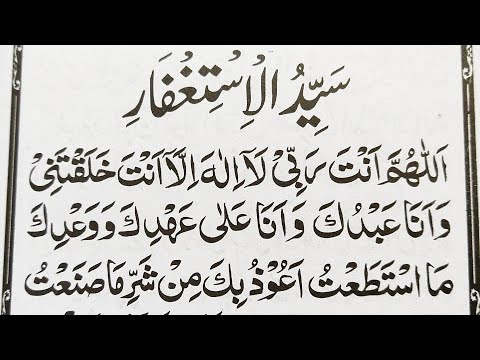 سَيِّدُ الْاِسْتِغْفَارِ
اَللّٰهُمَّ اَنْتَ رَبِّىْ لَآ اِلٰهَ اِلَّا اَنْتَ خَلَقْتَنِىْ
وَاَنَا عَبْدُكَ وَاَنَا عَلٰى عَهْدِكَ وَوَعْدِكَ
مَا اسْتَطَعْتُ اَعُوْذُ بِكَ مِنْ شَرِّ مَا صَنَعْتُ